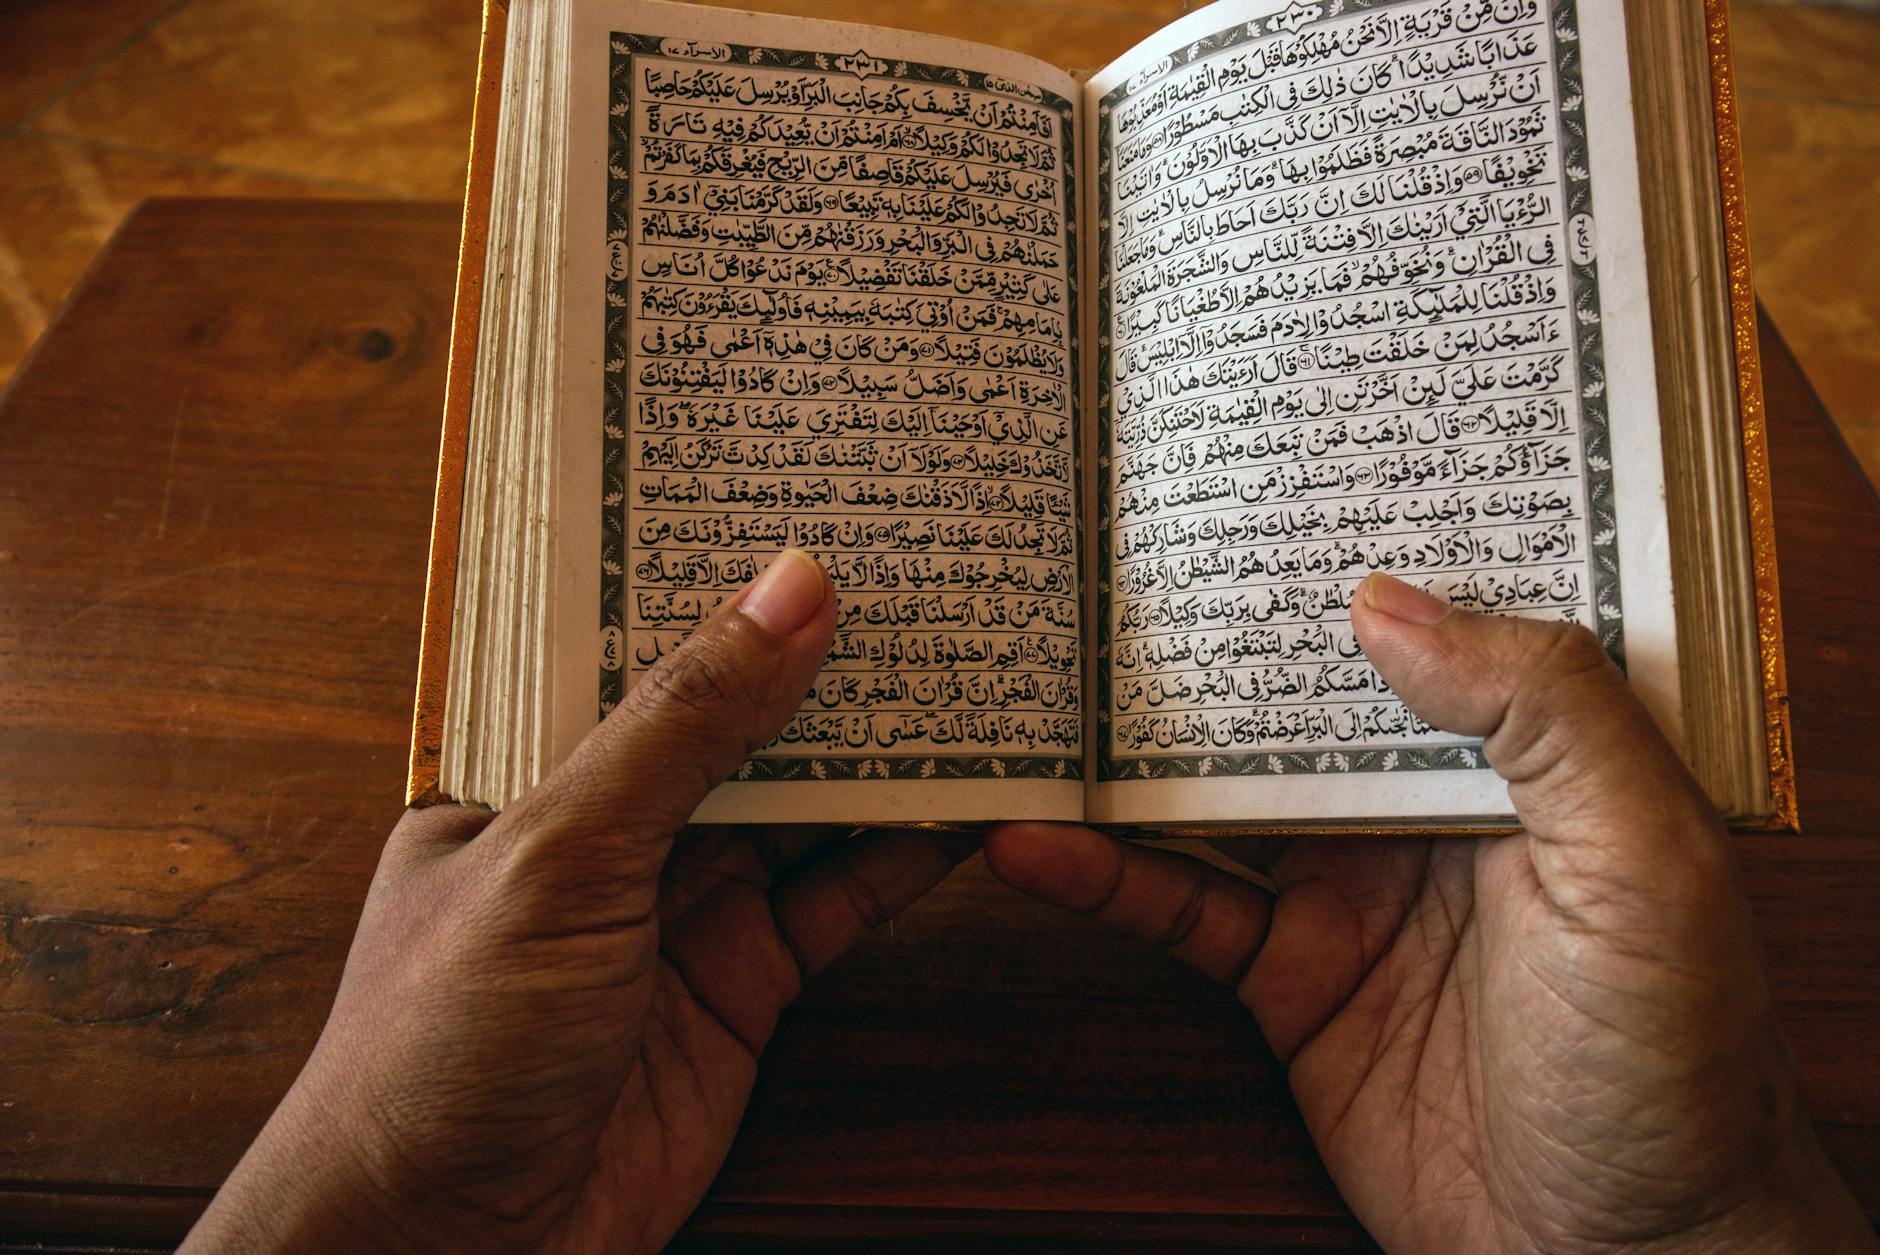 ٢٣٠
الاسرآء ١٧
وَاِنْ مِّنْ قَرْيَةٍ اِلَّا نَحْنُ مُهْلِكُوْهَا قَبْلَ يَوْمِ الْقِيٰمَةِ اَوْ مُعَذِّبُوْهَا
عَذَابًا شَدِيْدًاۗ كَانَ ذٰلِكَ فِى الْكِتٰبِ مَسْطُوْرًا ٥٨ وَمَا مَنَعَنَآ
اَنْ نُّرْسِلَ بِالْاٰيٰتِ اِلَّآ اَنْ كَذَّبَ بِهَا الْاَوَّلُوْنَۗ وَاٰتَيْنَا
ثَمُوْدَ النَّاقَةَ مُبْصِرَةً فَظَلَمُوْا بِهَاۗ وَمَا نُرْسِلُ بِالْاٰيٰتِ اِلَّا
تَخْوِيْفًا ٥٩ وَاِذْ قُلْنَا لَكَ اِنَّ رَبَّكَ اَحَاطَ بِالنَّاسِۗ وَمَا جَعَلْنَا
الرُّءْيَا الَّتِيْٓ اَرَيْنٰكَ اِلَّا فِتْنَةً لِّلنَّاسِ وَالشَّجَرَةَ الْمَلْعُوْنَةَ
فِى الْقُرْاٰنِۗ وَنُخَوِّفُهُمْۙ فَمَا يَزِيْدُهُمْ اِلَّا طُغْيَانًا كَبِيْرًا ٦٠
وَاِذْ قُلْنَا لِلْمَلٰۤىِٕكَةِ اسْجُدُوْا لِاٰدَمَ فَسَجَدُوْٓا اِلَّآ اِبْلِيْسَۗ قَالَ
ءَاَسْجُدُ لِمَنْ خَلَقْتَ طِيْنًاۚ ٦١ قَالَ اَرَءَيْتَكَ هٰذَا الَّذِيْ
كَرَّمْتَ عَلَيَّ لَىِٕنْ اَخَّرْتَنِ اِلٰى يَوْمِ الْقِيٰمَةِ لَاَحْتَنِكَنَّ ذُرِّيَّتَهٗٓ
اِلَّا قَلِيْلًا ٦٢ قَالَ اذْهَبْ فَمَنْ تَبِعَكَ مِنْهُمْ فَاِنَّ جَهَنَّمَ
جَزَاۤؤُكُمْ جَزَاۤءً مَّوْفُوْرًا ٦٣ وَاسْتَفْزِزْ مَنِ اسْتَطَعْتَ مِنْهُمْ
بِصَوْتِكَ وَاَجْلِبْ عَلَيْهِمْ بِخَيْلِكَ وَرَجِلِكَ وَشَارِكْهُمْ فِى
الْاَمْوَالِ وَالْاَوْلَادِ وَعِدْهُمْۗ وَمَا يَعِدُهُمُ الشَّيْطٰنُ اِلَّا غُرُوْرًا ٦٤
اِنَّ عِبَادِيْ لَيْسَ سُلْطٰنٌۗ وَكَفٰى بِرَبِّكَ وَكِيْلًا ٦٥ رَبُّكُمُ
فِى الْبَحْرِ لِتَبْتَغُوْا مِنْ فَضْلِهٖۗ اِنَّهٗ
مَسَّكُمُ الضُّرُّ فِى الْبَحْرِ ضَلَّ مَنْ
نَجّٰىكُمْ اِلَى الْبَرِّ اَعْرَضْتُمْۗ وَكَانَ الْاِنْسَانُ كَفُوْرًا ٦٧
سبحن الذى ١٥
٢٣١
الاسرآء ١٧
اَفَاَمِنْتُمْ اَنْ يَّخْسِفَ بِكُمْ جَانِبَ الْبَرِّ اَوْ يُرْسِلَ عَلَيْكُمْ حَاصِبًا
ثُمَّ لَا تَجِدُوْا لَكُمْ وَكِيْلًاۙ ٦٨ اَمْ اَمِنْتُمْ اَنْ يُّعِيْدَكُمْ فِيْهِ تَارَةً
اُخْرٰى فَيُرْسِلَ عَلَيْكُمْ قَاصِفًا مِّنَ الرِّيْحِ فَيُغْرِقَكُمْ بِمَا كَفَرْتُمْۙ
ثُمَّ لَا تَجِدُوْا لَكُمْ عَلَيْنَا بِهٖ تَبِيْعًا ٦٩ وَلَقَدْ كَرَّمْنَا بَنِيْٓ اٰدَمَ وَ
حَمَلْنٰهُمْ فِى الْبَرِّ وَالْبَحْرِ وَرَزَقْنٰهُمْ مِّنَ الطَّيِّبٰتِ وَفَضَّلْنٰهُمْ
عَلٰى كَثِيْرٍ مِّمَّنْ خَلَقْنَا تَفْضِيْلًا ٧٠ يَوْمَ نَدْعُوْا كُلَّ اُنَاسٍ
بِاِمَامِهِمْۚ فَمَنْ اُوْتِيَ كِتٰبَهٗ بِيَمِيْنِهٖ فَاُولٰۤىِٕكَ يَقْرَءُوْنَ كِتٰبَهُمْ
وَلَا يُظْلَمُوْنَ فَتِيْلًا ٧١ وَمَنْ كَانَ فِيْ هٰذِهٖٓ اَعْمٰى فَهُوَ فِى
الْاٰخِرَةِ اَعْمٰى وَاَضَلُّ سَبِيْلًا ٧٢ وَاِنْ كَادُوْا لَيَفْتِنُوْنَكَ
عَنِ الَّذِيْٓ اَوْحَيْنَآ اِلَيْكَ لِتَفْتَرِيَ عَلَيْنَا غَيْرَهٗۖ وَاِذًا
لَّاتَّخَذُوْكَ خَلِيْلًا ٧٣ وَلَوْلَآ اَنْ ثَبَّتْنٰكَ لَقَدْ كِدْتَّ تَرْكَنُ اِلَيْهِمْ
شَيْـًٔا قَلِيْلًا ٧٤ اِذًا لَّاَذَقْنٰكَ ضِعْفَ الْحَيٰوةِ وَضِعْفَ الْمَمَاتِ
ثُمَّ لَا تَجِدُ لَكَ عَلَيْنَا نَصِيْرًا ٧٥ وَاِنْ كَادُوْا لَيَسْتَفِزُّوْنَكَ مِنَ
الْاَرْضِ لِيُخْرِجُوْكَ مِنْهَا وَاِذًا لَّا اِلَّا قَلِيْلًا ٧٦
سُنَّةَ مَنْ قَدْ اَرْسَلْنَا قَبْلَكَ مِنْ لِسُنَّتِنَا
تَحْوِيْلًا ٧٧ اَقِمِ الصَّلٰوةَ لِدُلُوْكِ
وَقُرْاٰنَ الْفَجْرِۗ اِنَّ قُرْاٰنَ الْفَجْرِ كَانَ
فَتَهَجَّدْ بِهٖ نَافِلَةً لَّكَۖ عَسٰٓى اَنْ يَّبْعَثَكَ